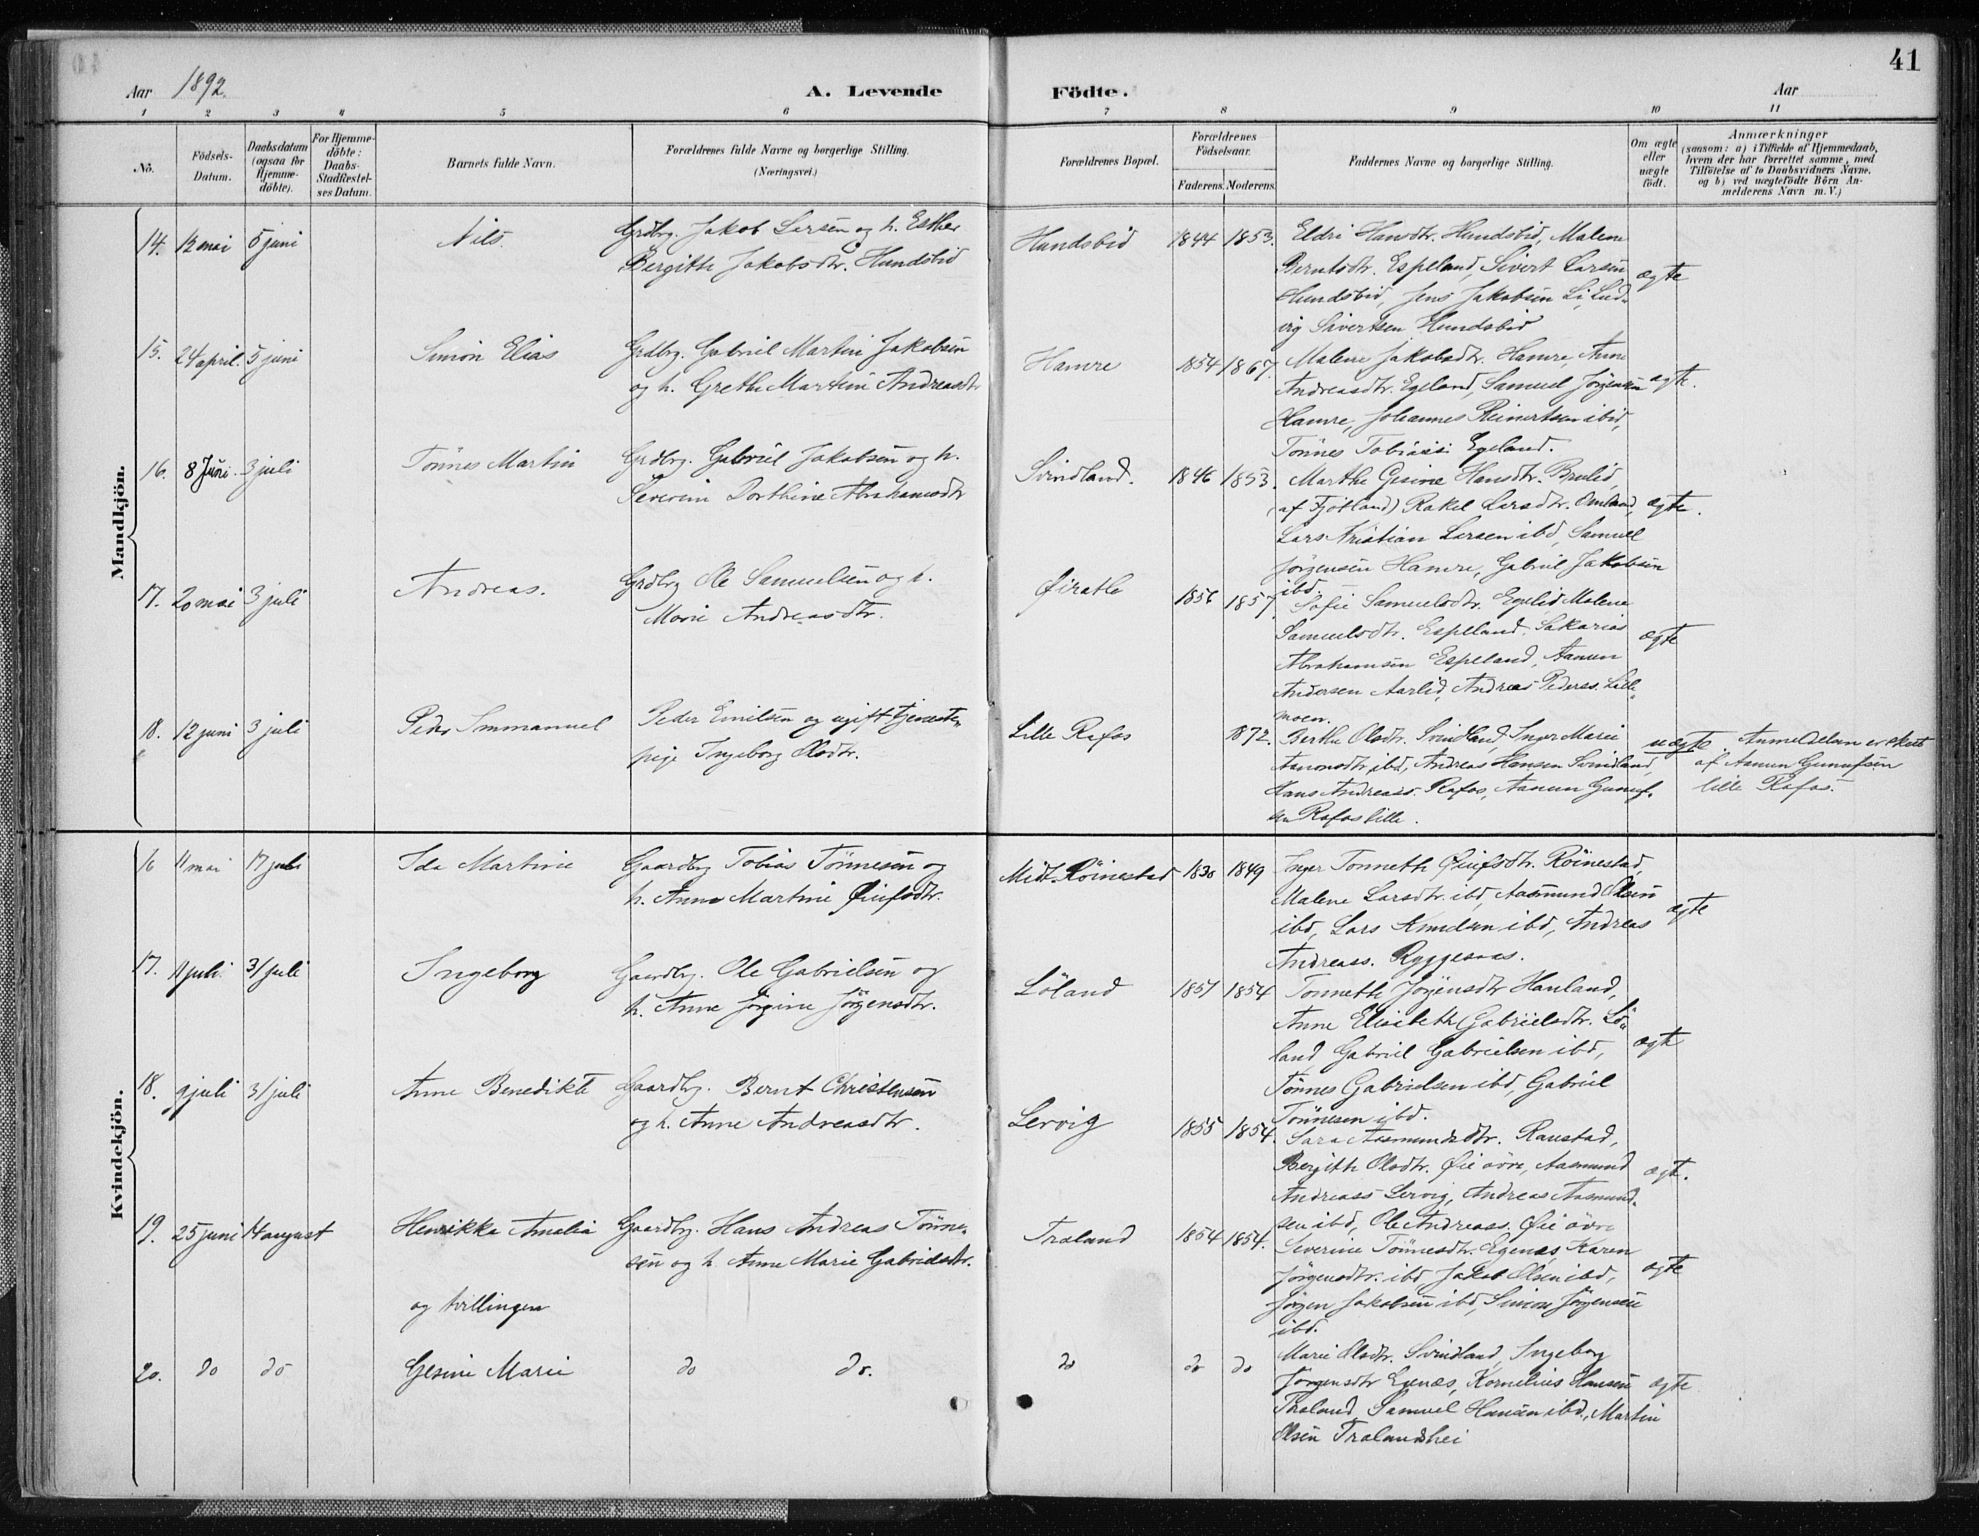 41
Aar 1892. A. Levende Födte. Aar
1 2 3 4 5 6 7 8 9 10 11
No. Födsels-Datum. Daabsdatum (ogsaa for Hjemme-döbte). For Hjemme-döbte: Daabs-Stadfæstel-ses Datum. Barnets fulde Navn. Forældrenes fulde Navne og borgerlige Stilling. (Næringsvei.) Forældrenes Bopæl. Forældrenes Födselsaar. Faderens. Moderens. Faddernes Navne og borgerlige Stilling. Om ægte eller uægte födt. Anmærkninger (saasom: a) i Tilfælde af Hjemmedaab, hvem der har forrettet samme, med Tilföielse af to Daabsvidners Navne. og b) ved uægtefödte Börn An-melderens Navn m. V.)
Mandkjön.
14. 12 mai 5 juni Nils. Grdbrg. Jakob Larsen og h. Esther
Bergitte Jakobsdtr. Hundsbid
Hundsbid 1844 1853. Eldri Hansdtr. Hundsbid, Malene
Berntsdtr. Espeland, Sivert Larsen
Hundsbid, Jens Jakobsen Li, Lud-
vig Sivertsen Hundsbid
ægte
15. 24 april. 5 juni Simon Elias Grdbrg. Gabriel Martin Jakobsen
og h. Grethe Martine Andreasdtr
Hamre 1854 1867. Malene Jakobsdtr. Hamre, Anne
Andreasdtr. Egeland, Samuel Jörgensen
Hamre, Johannes Reinertsen ibid,
Tönnes Tobiass. Egeland.
ægte.
16. 8 Juni 3 juli Tönnes Martin Grdbrg. Gabriel Jakobsen og h.
Severine Dorthine Abrahamsdtr
Svindland. 1846 1853. Marthe Gesine Hansdtr. Brulid,
(af Fjotland) Rakel Larsdtr. Omland,
Lars Kristian Larsen ibd, Samuel
Jörgensen Hamre, Gabriel Jakobsen
ibd.
ægte.
17. 20 mai 3 juli Andreas. Grdbrg Ole Samuelsen og h.
Marie Andreasdtr.
1856 1857. Sofie Samuelsdtr. Egelid, Malene
Samuelsdtr. Espeland, Sakarias
Abrahamsen Espeland, Aanen
Andersen Aarlid, Andreas Peders. Lille
moen.
ægte
18. 12 juni 3 juli Peder Immanuel Peder Emilsen og ugift tjeneste-
pige Ingeborg Olsdtr.
Lille Rafos 1872. Berthe Olsdtr. Svindland, Inger Marie
Aanonsdtr ibd, Andreas Hansen Svindland,
Hans Andreass. Rafos, Aanen Gunuf-
sen Rafos lille.
uægte. Anmeldelsen er skeet
af Aanen Gunufsen
lille Rafos.
Kvindekjön.
16 11 mai 17 juli Ida Martine Gaardbrg Tobias Tönnesen og
h. Anne Martine Öiufsdtr.
Midt. Röinestad 1830 1849 Inger Tonnette Öiufsdtr. Röinestad,
Malene Larsdtr. ibd, Aasmund Olsen
ibd, Lars Knudsen ibd, Andreas
Andreass. Ryggesaas.
ægte
17. 11 juli 31 juli Ingeborg Gaardbrg. Ole Gabrielsen og
h. Anne Jörgine Jörgensdtr.
Löland 1851 1854 Tonnette Jörgensdtr Hauland,
Anne Elisabeth Gabrielsdtr. Lö-
land Gabriel Gabrielsen ibd,
Tönnes Gabrielsen ibd, Gabriel
Tönnesen ibd.
ægte
18. 9 juli 31 juli Anne Benedikte Gaardbrg. Bernt Christensen
og h. Anne Andreasdtr.
Lervig 1855 1854. Sara Aasmundsdtr. Raustad,
Bergitte Olsdtr. Öie övre, Aasmund
Andreass Lervig, Andreas Aasmund-
sen ibd, Ole Andreass. Öie övre
ægte.
19. 25 juni 14 august Henrikka Amalia Gaardbrg. Hans Andreas Tönne-
sen og h. Anne Marie Gabrielsdtr.
og tvillingen
Traland 1854 1854. Severine Tönnesdtr. Egenæs, Karen
Jörgensdtr. ibd, Jakob Olsen ibd,
Jörgen Jakobsen ibd, Simon Jörgensen
ibd.
ægte
20. do do Gesine Marie do do.
do do do Marie Olsdtr. Svindland, Ingeborg
Jörgensdtr Egenæs, Kornelius Hansen
Thaland, Samuel Hansen ibd, Martin
Olsen Tralandshei
ægte